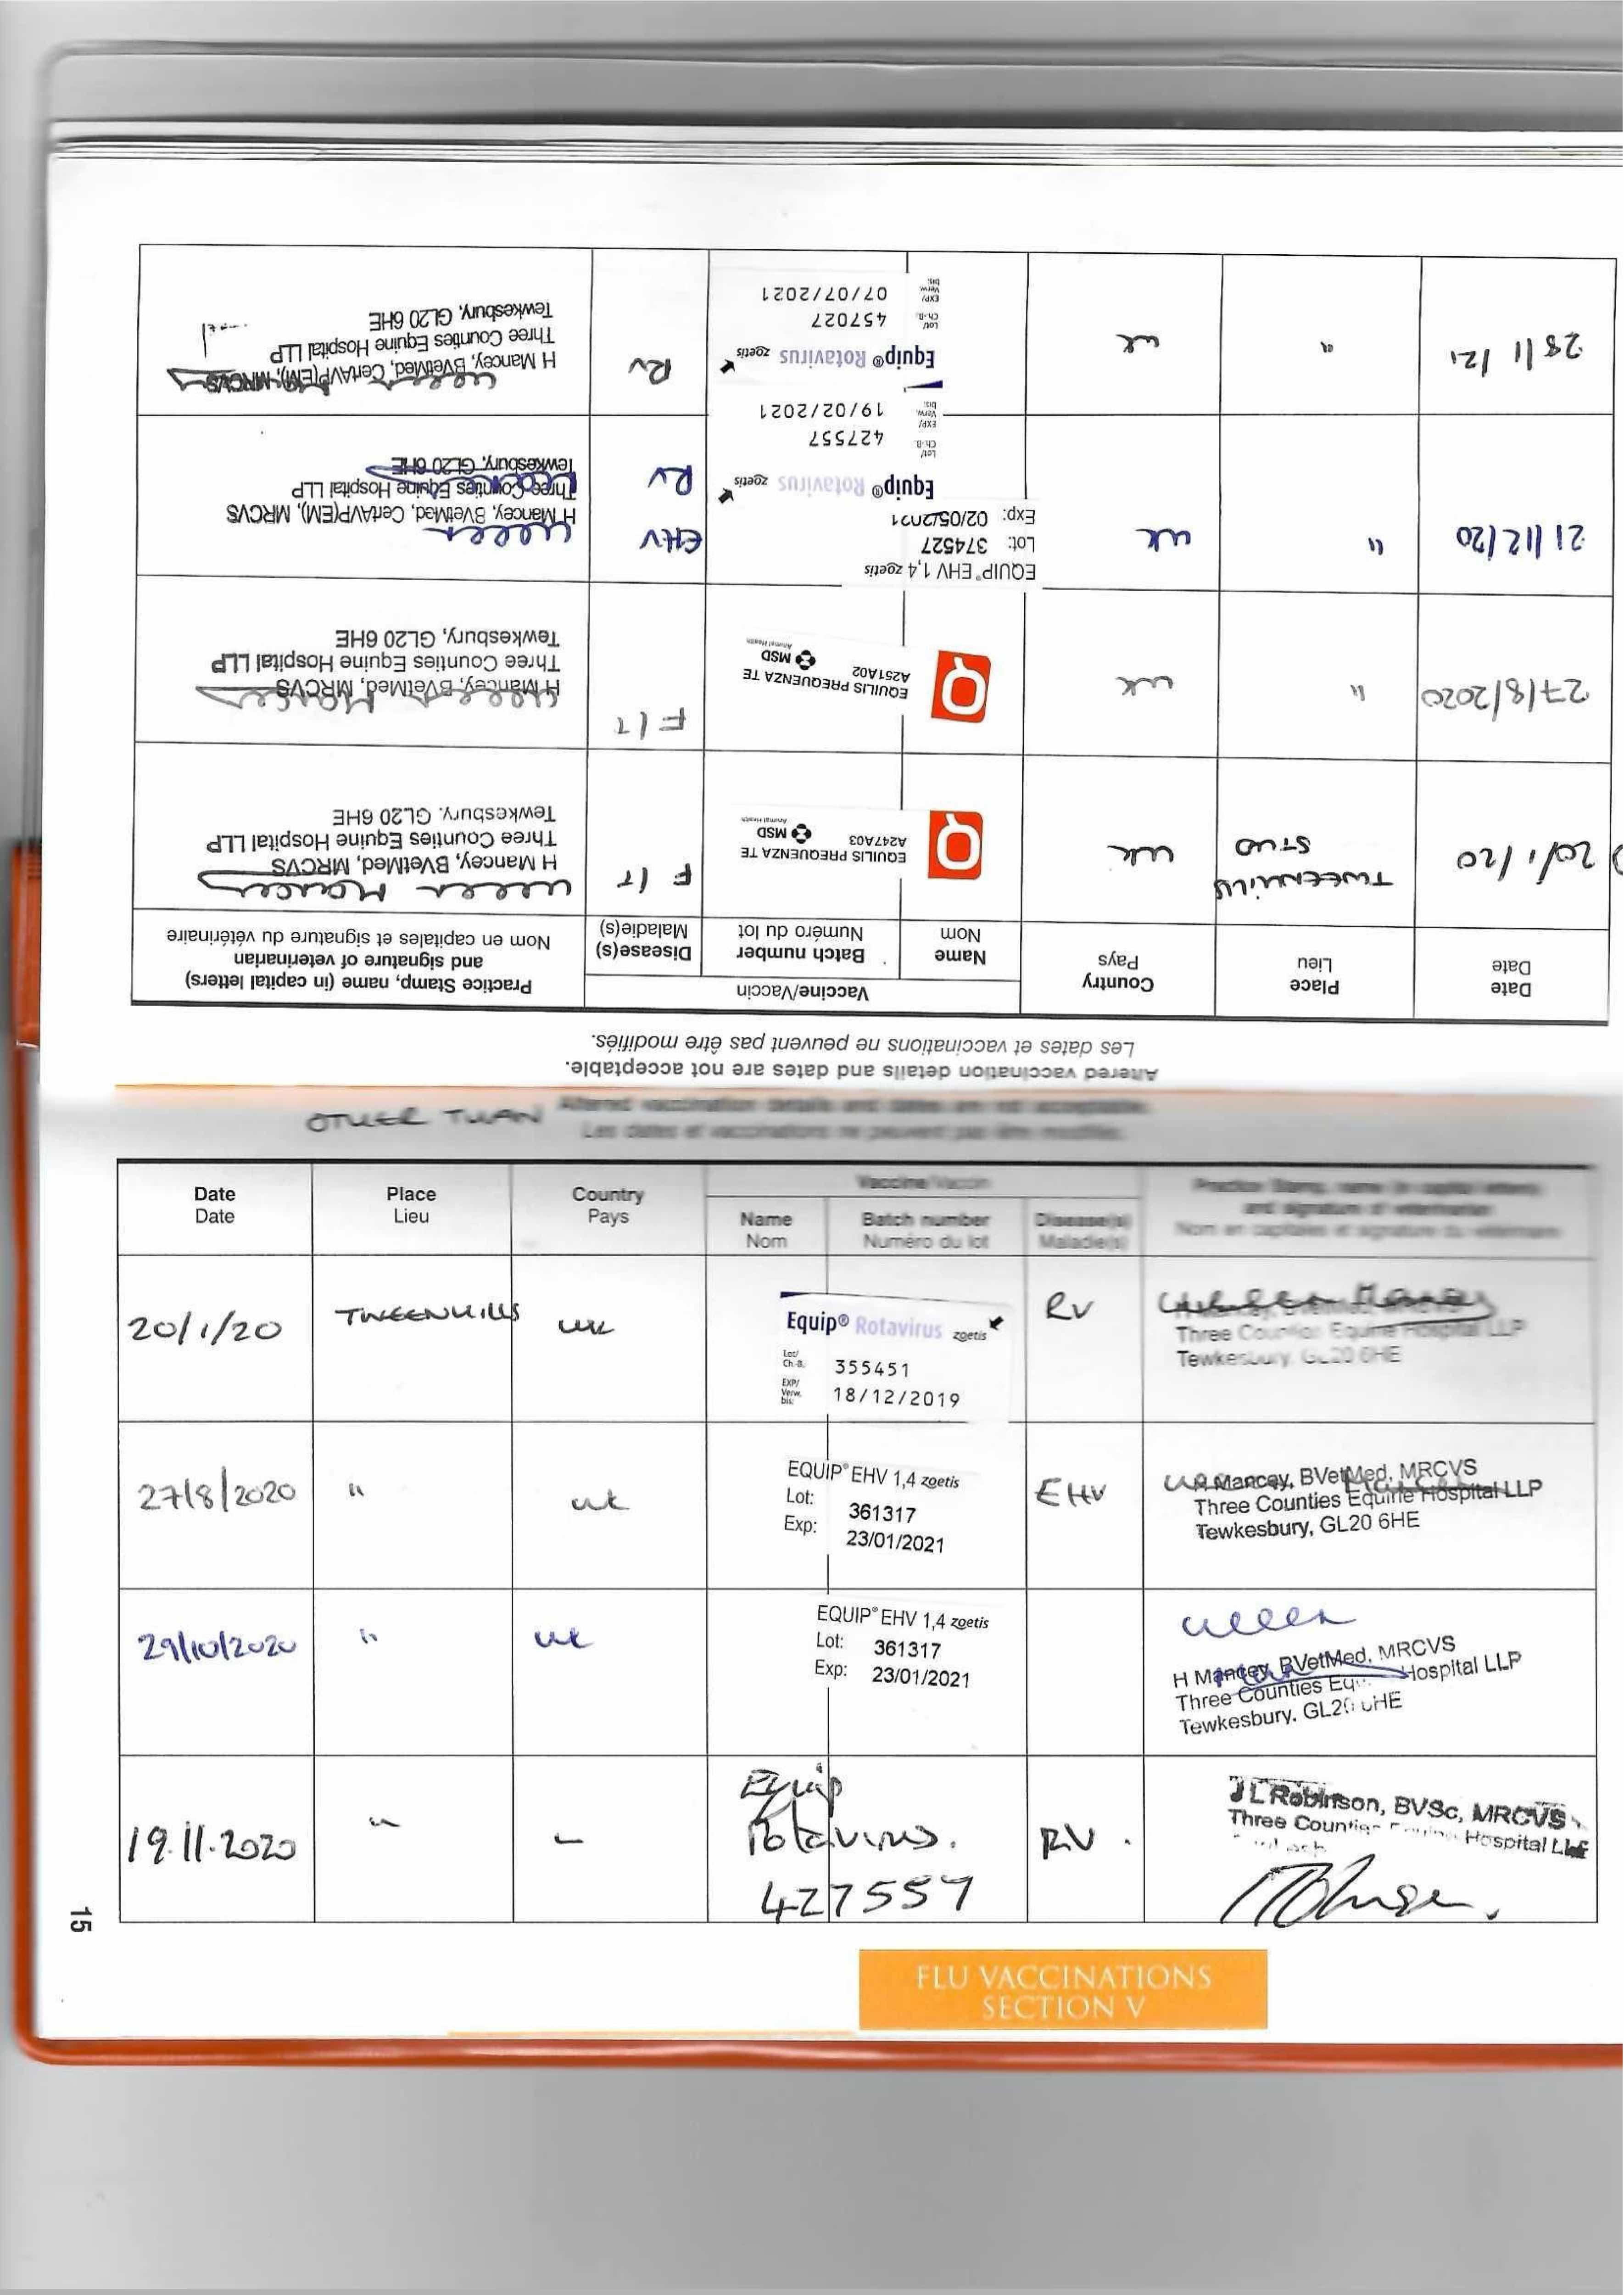 Altered vaccination details and dates are not acceptable.
Les dates et vaccinations ne peuvent pas être modifiés.
Date
Date
Place
Lieu
Country
Pays
Vaccine/Vaccin
Name
Nom
Batch number
Numéro du lot
Disease(s)
Maladie(s)
Practice Stamp, name (in capital letters)
and signature of veterinarian
Nom en capitales et signature du vétérinaire
20/1/20
TWEENHILLS
STUD
UK
EQUILIS PREQUENZA TE
A247A03
MSD
Animal Health
F/T
H Mancey, BVetMed, MRCVS
Three Counties Equine Hospital LLP
Tewkesbury. GL20 6HE
27/8/2020
"
UK
EQUILIS PREQUENZA TE
A251A02
MSD
Animal Health
F/T
H Mancey, BVetMed, MRCVS
Three Counties Equine Hospital LLP
Tewkesbury, GL20 6HE
21/12/20
"
UK
EQUIP® EHV 1,4 zoetis
Lot: 374527
Exp: 02/05/2021
Equip® Rotavirus zoetis
Lot/
Ch.-B. 427557
EXP/
Verw.
bis: 19/02/2021
EHV
RV
H Mancey, BVetMed, CertAVP(EM), MRCVS
Three Counties Equine Hospital LLP
Tewkesbury, GL20 6HE
28/1/21
"
UK
Equip® Rotavirus zoetis
Lot/
Ch.-B. 457027
EXP/
Verw.
bis: 07/07/2021
RV
H Mancey, BVetMed, CertAVP(EM), MRCVS
Three Counties Equine Hospital LLP
Tewkesbury, GL20 6HE
OTHER THAN
Altered vaccination details and dates are not acceptable.
Les dates et vaccinations ne peuvent pas être modifiés.
Date
Date
Place
Lieu
Country
Pays
Vaccine/Vaccin
Name
Nom
Batch number
Numéro du lot
Disease(s)
Maladie(s)
Practice Stamp, name (in capital letters)
and signature of veterinarian
Nom en capitales et signature du vétérinaire
20/1/20
TWEENHILLS
UK
Equip® Rotavirus zoetis
Lot/
Ch.-B. 355451
EXP/
Verw.
bis: 18/12/2019
RV
Three Counties Equine Hospital LLP
Tewkesbury. GL20 6HE
27/8/2020
"
UK
EQUIP® EHV 1,4 zoetis
Lot: 361317
Exp: 23/01/2021
EHV
H Mancey, BVetMed, MRCVS
Three Counties Equine Hospital LLP
Tewkesbury, GL20 6HE
29/10/2020
"
UK
EQUIP® EHV 1,4 zoetis
Lot: 361317
Exp: 23/01/2021
H Mancey, BVetMed, MRCVS
Three Counties Equine Hospital LLP
Tewkesbury. GL20 6HE
19.11.2020
"
Equip
Rotavirus.
427557
RV.
J L Robinson, BVSc, MRCVS
Three Counties Equine Hospital
15
FLU VACCINATIONS
SECTION V